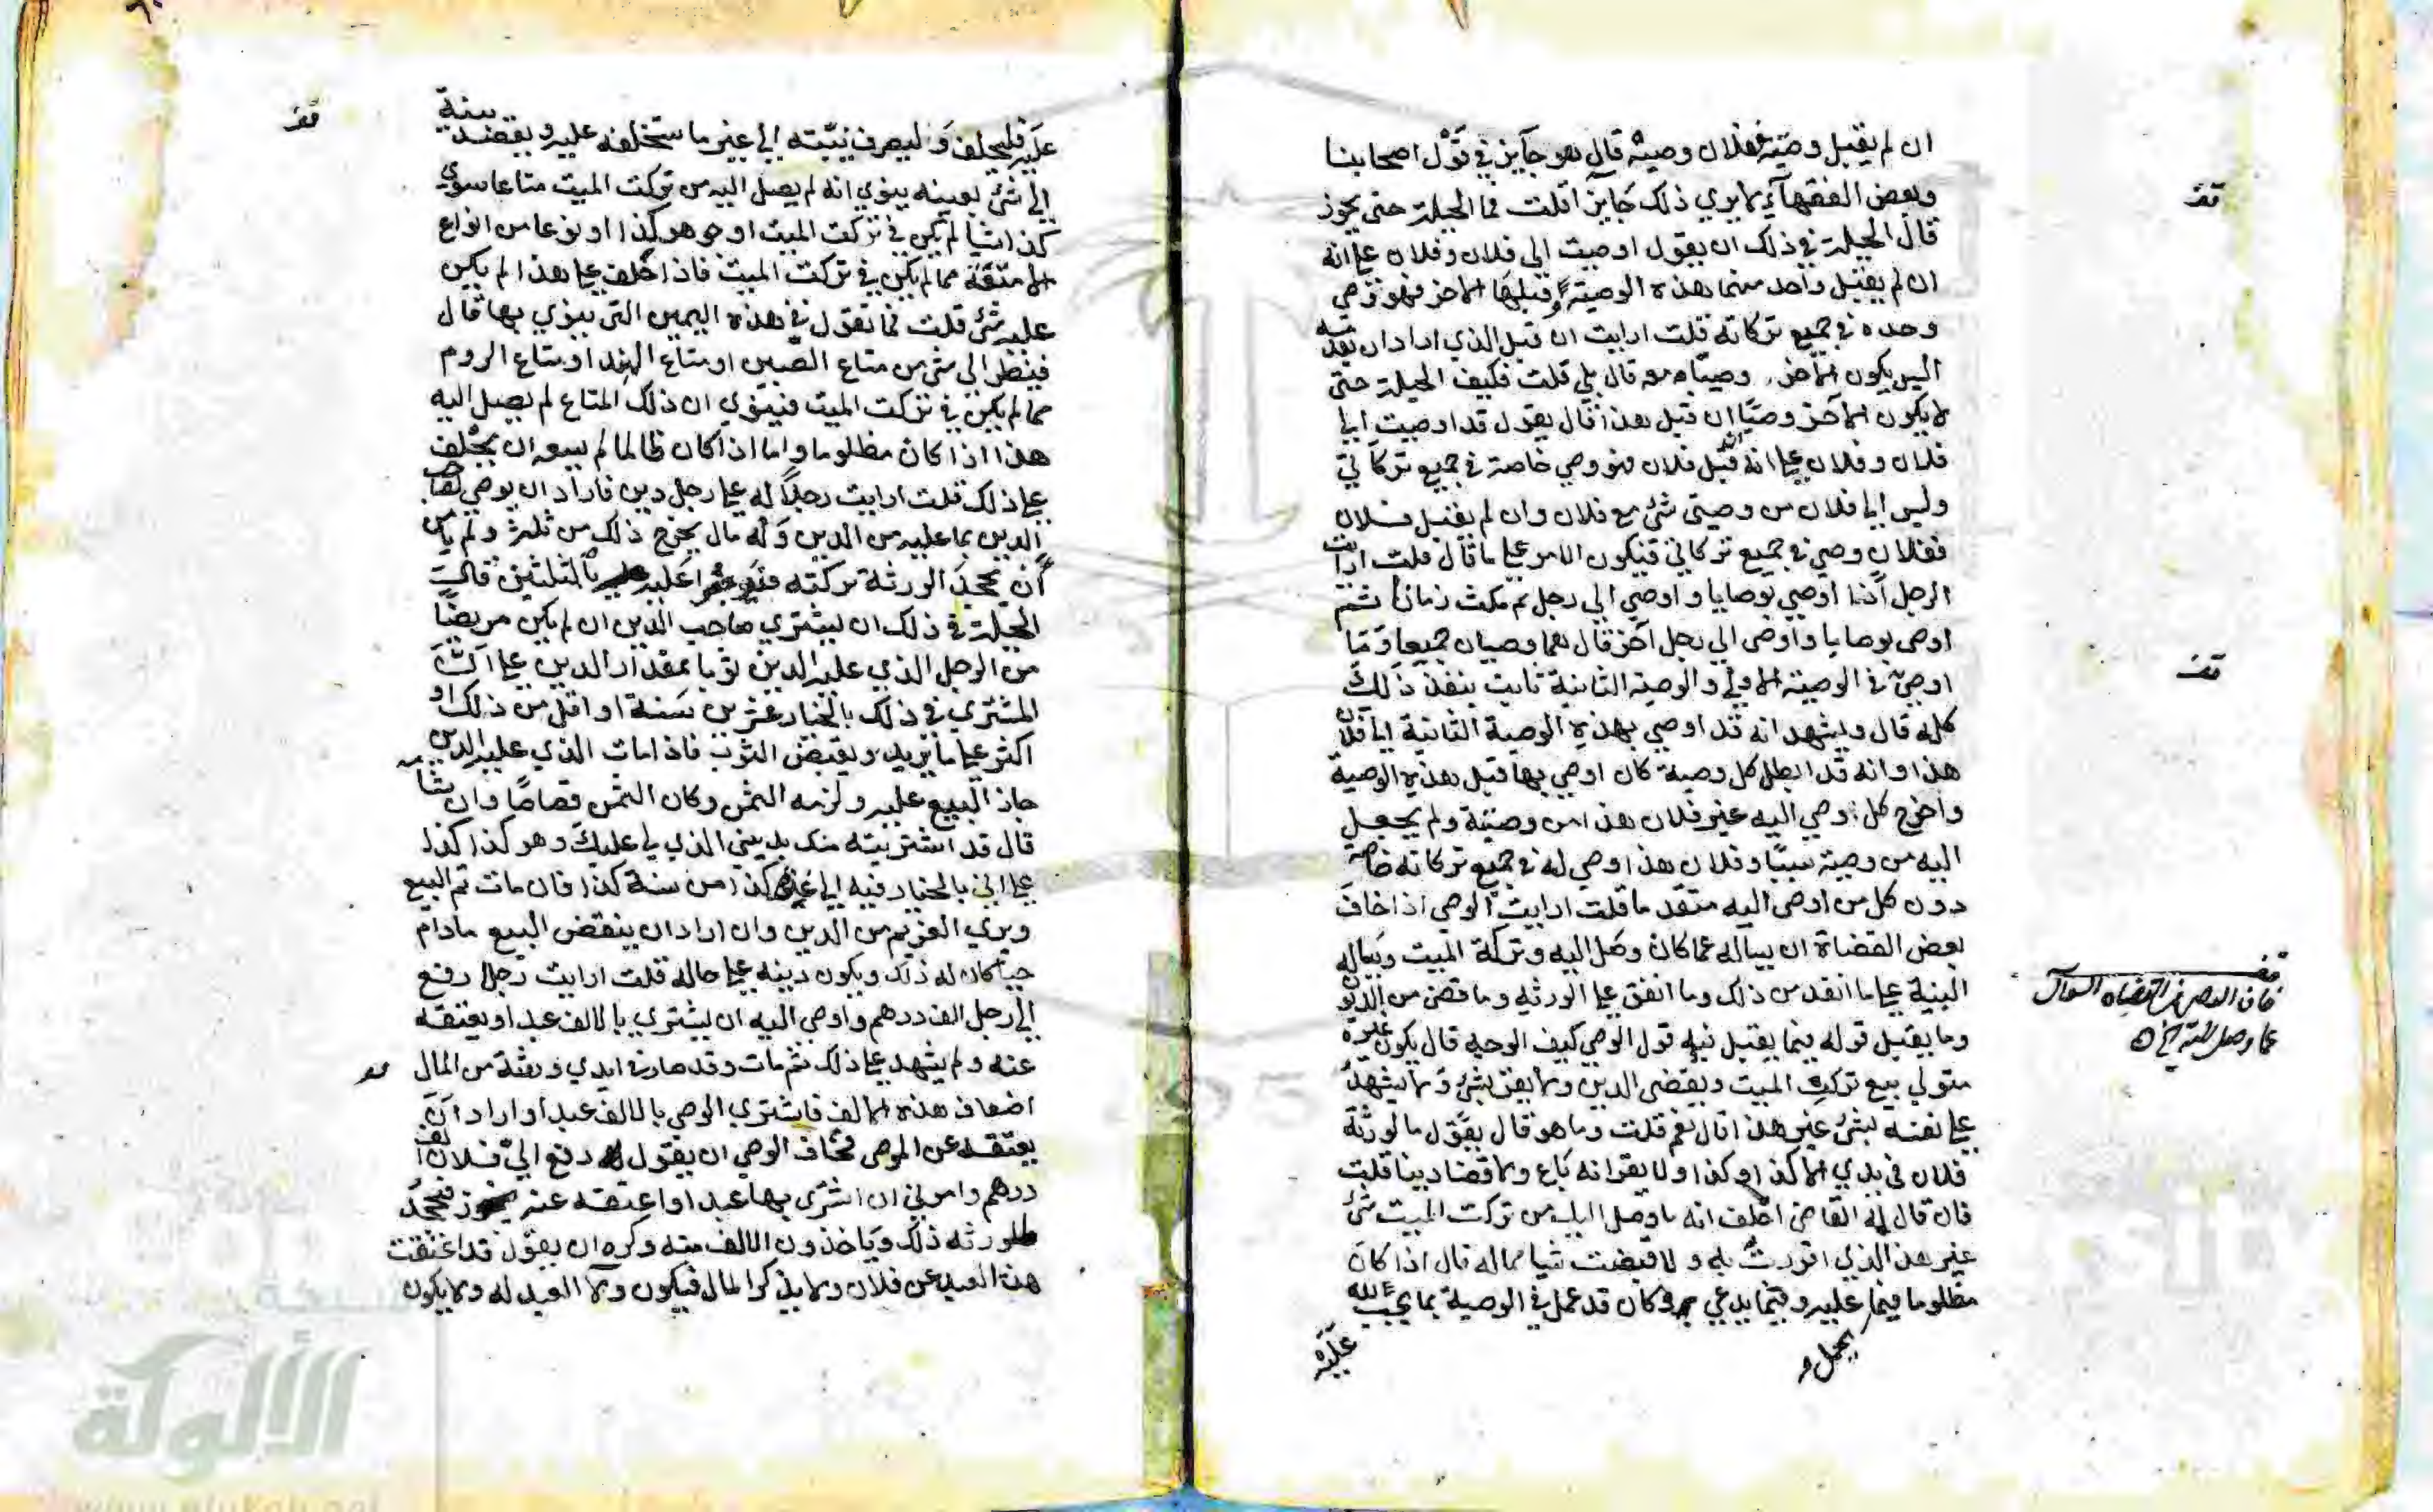 ان لم يقبل وصيته ففلان وصيه قال هو جآيز في قول اصحابنا
وبعض الفقهآء لا يري ذلك جايزا قلت فما الحيلة حتى يجوز
قال الحيلة في ذلك ان يقول اوصيت الى فلان وفلان علي انه
ان لم يقبل واحد منهما هذه الوصية وقبلها الاخر فهو وصي
وحده في جميع تركاته قلت ارايت ان قبل الذي اراد ان
اليس يكون الآخر وصيا معه قال بلي قلت فكيف الحيلة حتى
لا يكون الآخر وصيا ان قبل هذا قال يقول قد اوصيت الي
فلان وفلان علي انه ان قبل فلان فهو وصي خاصة في جميع تركاتي
وليس الي فلان من وصيتى شئ مع فلان وان لم يقبل فلان
ففلان وصي في جميع تركاتي فيكون الامر علي ما قال قلت ارايت
الرجل اذا اوصي بوصايا واوصي الي رجل ثم مكث زمانا ثم
اوصى بوصايا واوصى الي رجل آخر قال هما وصيان جميعا وما
اوصي في الوصية الاولي والوصية الثانية ثابت ينفذ ذلك
كله قال ويشهد انه قد اوصي بهذه الوصية الثانية الي فلان
هذا وانه قد ابطل كل وصية كان اوصي بها قبل هذه الوصية
واخرج كل وصي اليه غير فلان هذا من وصيته ولم يجعل
اليه من وصيته شيئا وفلان هذا وصي له في جميع تركاته خاصة
دون كل من اوصى اليه متقدما قلت ارايت الوصي اذا خاف
بعض القضاة ان يساله عما كان وصل اليه وتركة الميت ويساله
البينة علي ما انفذ من ذلك وما انفق علي الورثه وما قضى من الديون
وما يقبل قوله فيما يقبل فيه قول الوصي كيف الوجه قال يكون غيره
متولي بيع تركة الميت ويقضى الدين ولا يقر بشئ ولا يشهد
علي نفسه بشئ غير هذا قال نعم قلت وما هو قال يقول ما لورثة
فلان في يدي الا كذا وكذا ولا يقر انه باع ولا قضا دينا قلت
فان قال له القاضى احلف انه ما وصل اليك من تركت الميت شئ
غير هذا الذي اقررت به ولا قبضت شيا من ماله قال اذا كان
مظلوما فيما يحمل عليه وفيما يدعي به وكان قد عمل في الوصية بما يجب لله
عَلَيْه
قف
قف
قف
عما وصل اليه الخ
عليه فليحلف وليصرف نيته الي غير ما ستحلفه عليه ويقصد بنيته
الي شئ بعينه ينوي انه لم يصل اليه من تركت الميت متاعا سوي
كذا شيا لم يكن في تركت الميت او جوهر كذا او نوعا من انواع
الامتعة مما لم يكن في تركت الميت فاذا حلف علي هذا لم يكن
عليه شئ قلت فما تقول في هذه اليمين التى ينوي بها قال
فينظر الى شئ من متاع الصين او متاع الهند او متاع الروم
مما لم يكن في تركت الميت فينوي ان ذلك المتاع لم يصل اليه
هذا اذا كان مظلوما واما اذا كان ظالما لم يسعه ان يحلف
علي ذلك قلت ارايت رجلا له علي رجل دين فاراد ان يوصي لصاحب
الدين بما عليه من الدين وله مال يخرج ذلك من ثلثه ولم يامن
ان تجحد الورثة تركته عليه بالثلثين قال
الحيلة في ذلك ان يشتري صاحب الدين ان لم يكن مريضا
من الرجل الذي عليه الدين ثوبا بمقدار الدين علي ان
المشتري في ذلك بالخيار عشرين سنة او اقل من ذلك او
اكثر علي ما يريد ويقبض الثوب فاذا مات الذي عليه الدين
جاز البيع عليه ولزمه الثمن وكان الثمن قصاصا وان شآء
قال قد اشتريته منك بديني الذي لي عليك وهو كذا كذا
علي اني بالخيار فيه الي غرة كذا من سنة كذا فان مات تم البيع
وبري الغريم من الدين وان اراد ان ينقض البيع مادام
حيا كان له ذلك ويكون دينه علي حاله قلت ارايت رجلا دفع
الي رجل الف درهم واوصي اليه ان يشتري بالالف عبدا ويعتقه
عنه ولم يشهد علي ذلك ثم مات وقد صار في ايدي ورثة من المال
اضعاف هذه الالف فاشتري الوصي بالالف عبدا واراد ان
يعتقه عن الموصى فخاف الوصي ان يقول دفع الي فلان الف
درهم وامرني ان اشتري بها عبدا واعتقه عنه فتجحد
الورثه ذلك وياخذون الالف منه وكره ان يقول قد اعتقت
هذا العبد عن فلان ولا يذكر المال فيكون ولآ العبد له ولا يكون
قف
الألوكة